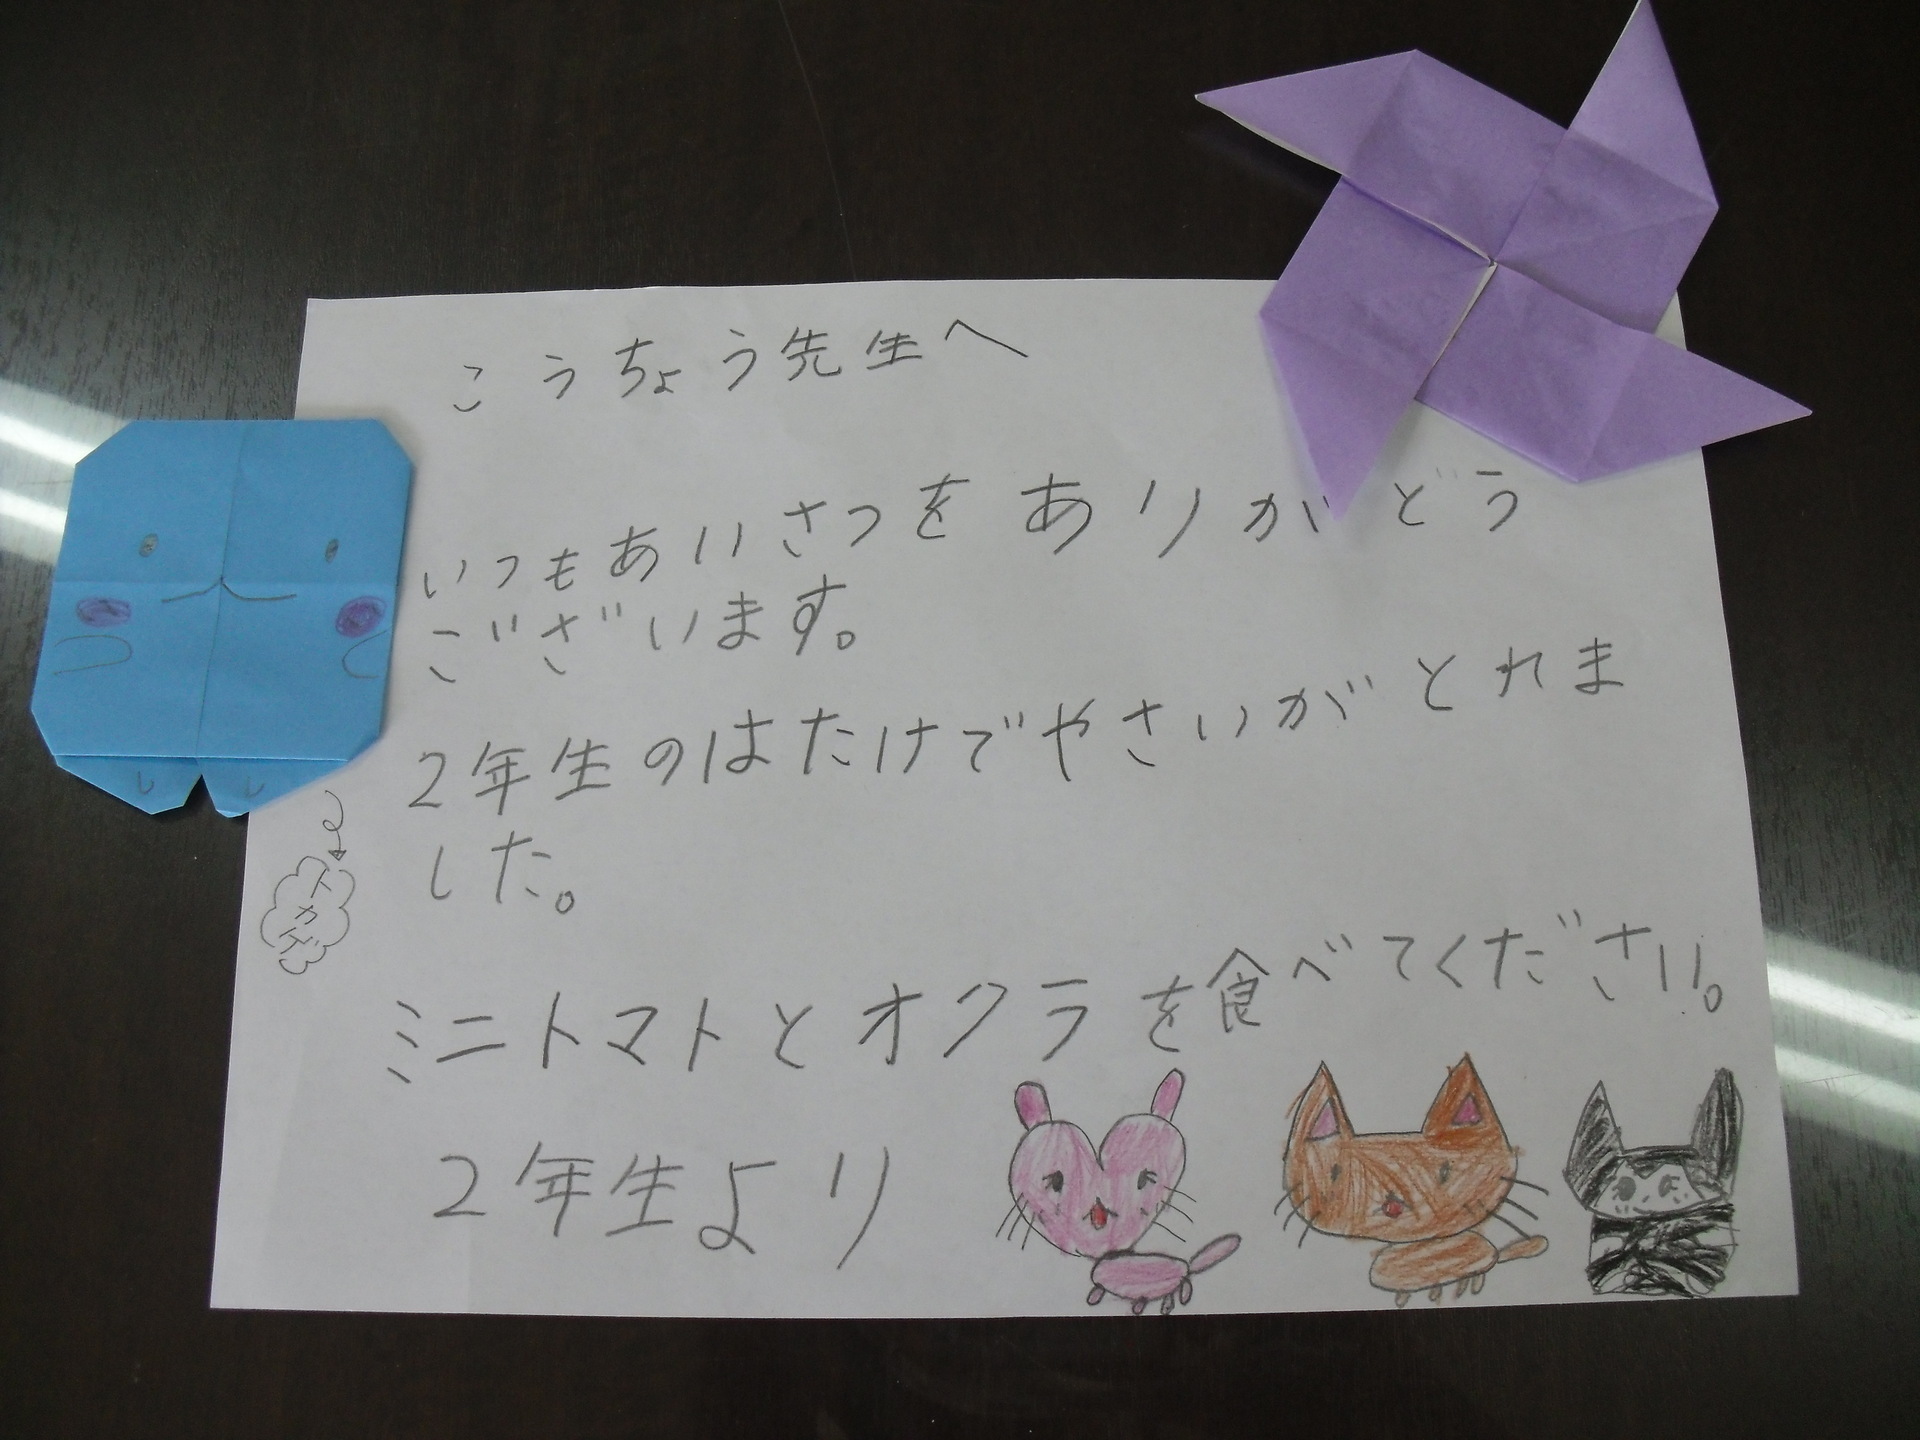 こうちょう先生へ
いつもあいさつをありがどう
ございます。
2年生のはたけでやさいがとれま
した。
トカゲ
ミニトマトとオクラを食べてください。
2年生より